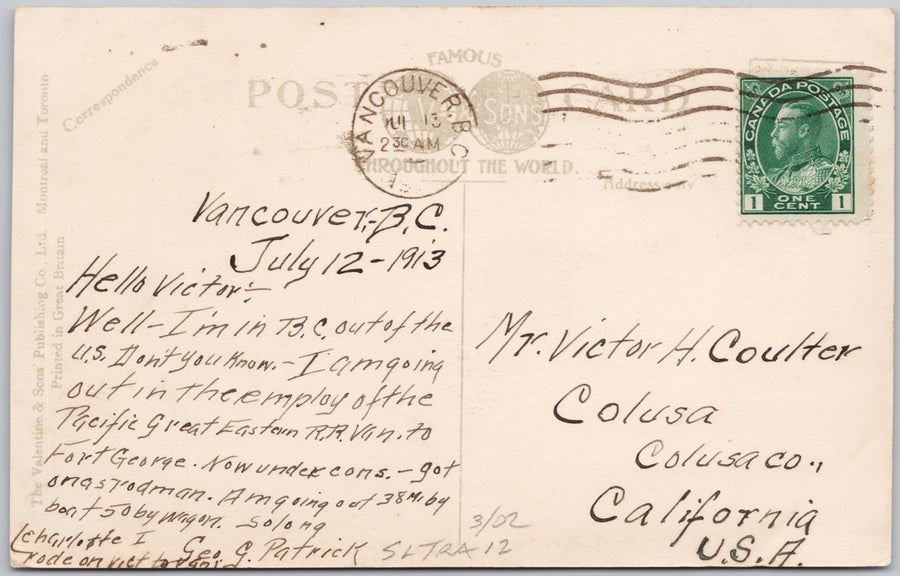 Correspondence
FAMOUS
POST CARD
SONS
THROUGHOUT THE WORLD.
Address only
VANCOUVER, B.C.
JUL 13
2 30 AM
CANADA POSTAGE
1 ONE CENT 1
The Valentine & Sons Publishing Co., Ltd. Montreal and Toronto
Printed in Great Britain
Vancouver,-B.C.
July 12-1913
Hello Victor:-
Well-I'm in B.C. out of the
U.S. Don't you know.- I am going
out in the employ of the
Pacific Great Eastern R.R. Van. to
Fort George. Now under cons.- got
on as rodman. Am going out 38 Mi by
boat 50 by wagon. So long
Geo. G. Patrick
(Charlotte I
rode on vict to
Mr. Victor H. Coulter
Colusa
Colusa co.,
California
U.S.A.
3/02
SLTRA 12